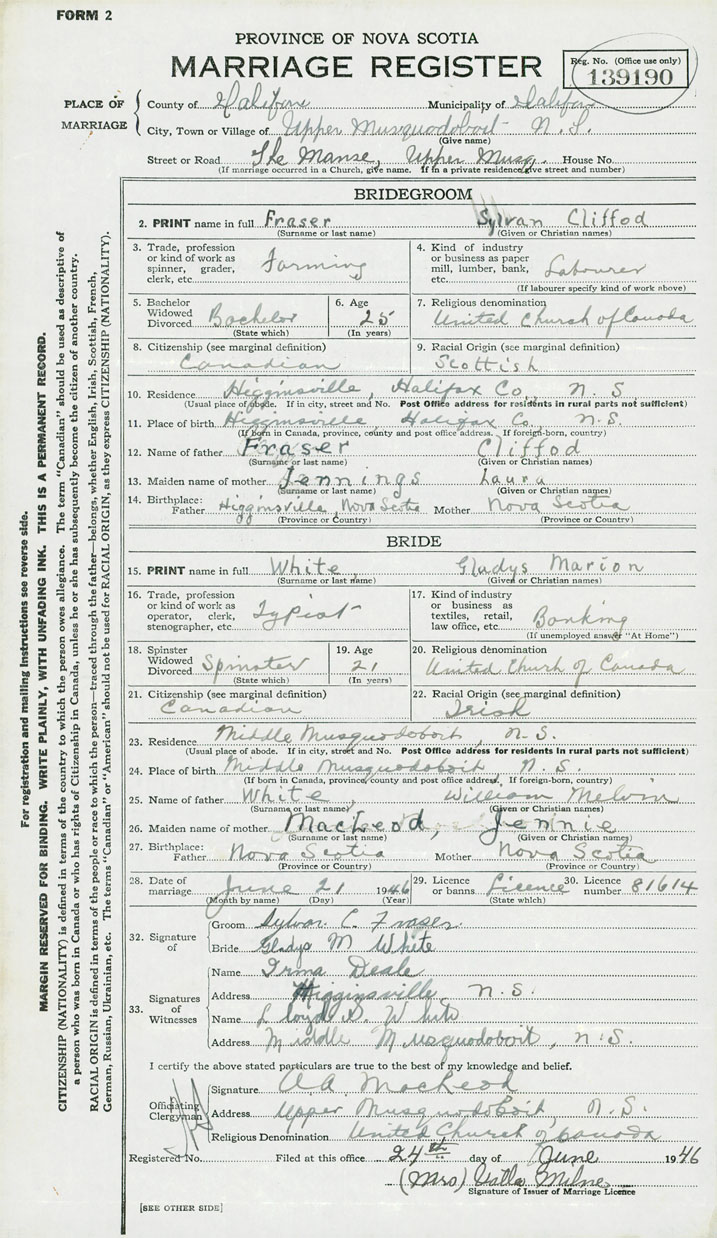 FORM 2
PROVINCE OF NOVA SCOTIA
MARRIAGE REGISTER
Reg. No. (Office use only)
139190
PLACE OF MARRIAGE
County of Halifax Municipality of Halifax
City, Town or Village of Upper Musquodoboit N. S.
(Give name)
Street or Road The Manse, Upper Musq. House No.
(If marriage occurred in a Church, give name. If in a private residence give street and number)
BRIDEGROOM
2. PRINT name in full Fraser Sylvan Cliffod
(Surname or last name) (Given or Christian names)
3. Trade, profession or kind of work as spinner, grader, clerk, etc. Farming
4. Kind of industry or business as paper mill, lumber, bank, etc. Labourer
(If labourer specify kind of work above)
5. Bachelor Widowed Divorced Bachelor
(State which)
6. Age 25
(In years)
7. Religious denomination
United Church of Canada
8. Citizenship (see marginal definition)
Canadian
9. Racial Origin (see marginal definition)
Scottish
10. Residence Higginsville, Halifax Co, N. S
(Usual place of abode. If in city, street and No. Post Office address for residents in rural parts not sufficient)
11. Place of birth Higginsville Halifax Co. N.S.
(If born in Canada, province, county and post office address. If foreign-born, country)
12. Name of father Fraser Cliffod
(Surname or last name) (Given or Christian names)
13. Maiden name of mother Jennings Laura
(Surname or last name) (Given or Christian names)
14. Birthplace: Father Higginsville, Nova Scotia Mother Nova Scotia
(Province or Country) (Province or Country)
BRIDE
15. PRINT name in full White, Gladys Marion
(Surname or last name) (Given or Christian names)
16. Trade, profession or kind of work as operator, clerk, stenographer, etc. Typist
17. Kind of industry or business as textiles, retail, law office, etc. Banking
(If unemployed answer "At Home")
18. Spinster Widowed Divorced Spinster
(State which)
19. Age 21
(In years)
20. Religious denomination
United Church of Canada
21. Citizenship (see marginal definition)
Canadian
22. Racial Origin (see marginal definition)
Irish
23. Residence Middle Musquodoboit, N. S.
(Usual place of abode. If in city, street and No. Post Office address for residents in rural parts not sufficient)
24. Place of birth Middle Musquodoboit N. S.
(If born in Canada, province, county and post office address. If foreign-born, country)
25. Name of father White, William Melvin
(Surname or last name) (Given or Christian names)
26. Maiden name of mother MacLeod Jennie
(Surname or last name) (Given or Christian names)
27. Birthplace: Father Nova Scotia Mother Nova Scotia
(Province or Country) (Province or Country)
28. Date of marriage June 21 1946
(Month by name) (Day) (Year)
29. Licence or banns Licence
(State which)
30. Licence number 81614
32. Signature of
Groom Sylvan C. Fraser
Bride Gladys M White
33. Signatures of Witnesses
Name Irma Deale
Address Higginsville N.S.
Name Lloyd D. White
Address Middle Musquodoboit, N.S.
I certify the above stated particulars are true to the best of my knowledge and belief.
Officiating Clergyman
Signature A. A. MacLeod
Address Upper Musquodoboit, N. S.
Religious Denomination United Church of Canada
Registered No. Filed at this office 24th day of June 1946
(Mrs) Milne
Signature of Issuer of Marriage Licence
[SEE OTHER SIDE]
For registration and mailing instructions see reverse side.
MARGIN RESERVED FOR BINDING. WRITE PLAINLY, WITH UNFADING INK. THIS IS A PERMANENT RECORD.
CITIZENSHIP (NATIONALITY) is defined in terms of the country to which the person owes allegiance. The term "Canadian" should be used as descriptive of
a person who was born in Canada or who has rights of Citizenship in Canada, unless he or she has subsequently become the citizen of another country.
RACIAL ORIGIN is defined in terms of the people or race to which the person—traced through the father—belongs, whether English, Irish, Scottish, French,
German, Russian, Ukrainian, etc. The terms "Canadian" or "American" should not be used for RACIAL ORIGIN, as they express CITIZENSHIP (NATIONALITY).